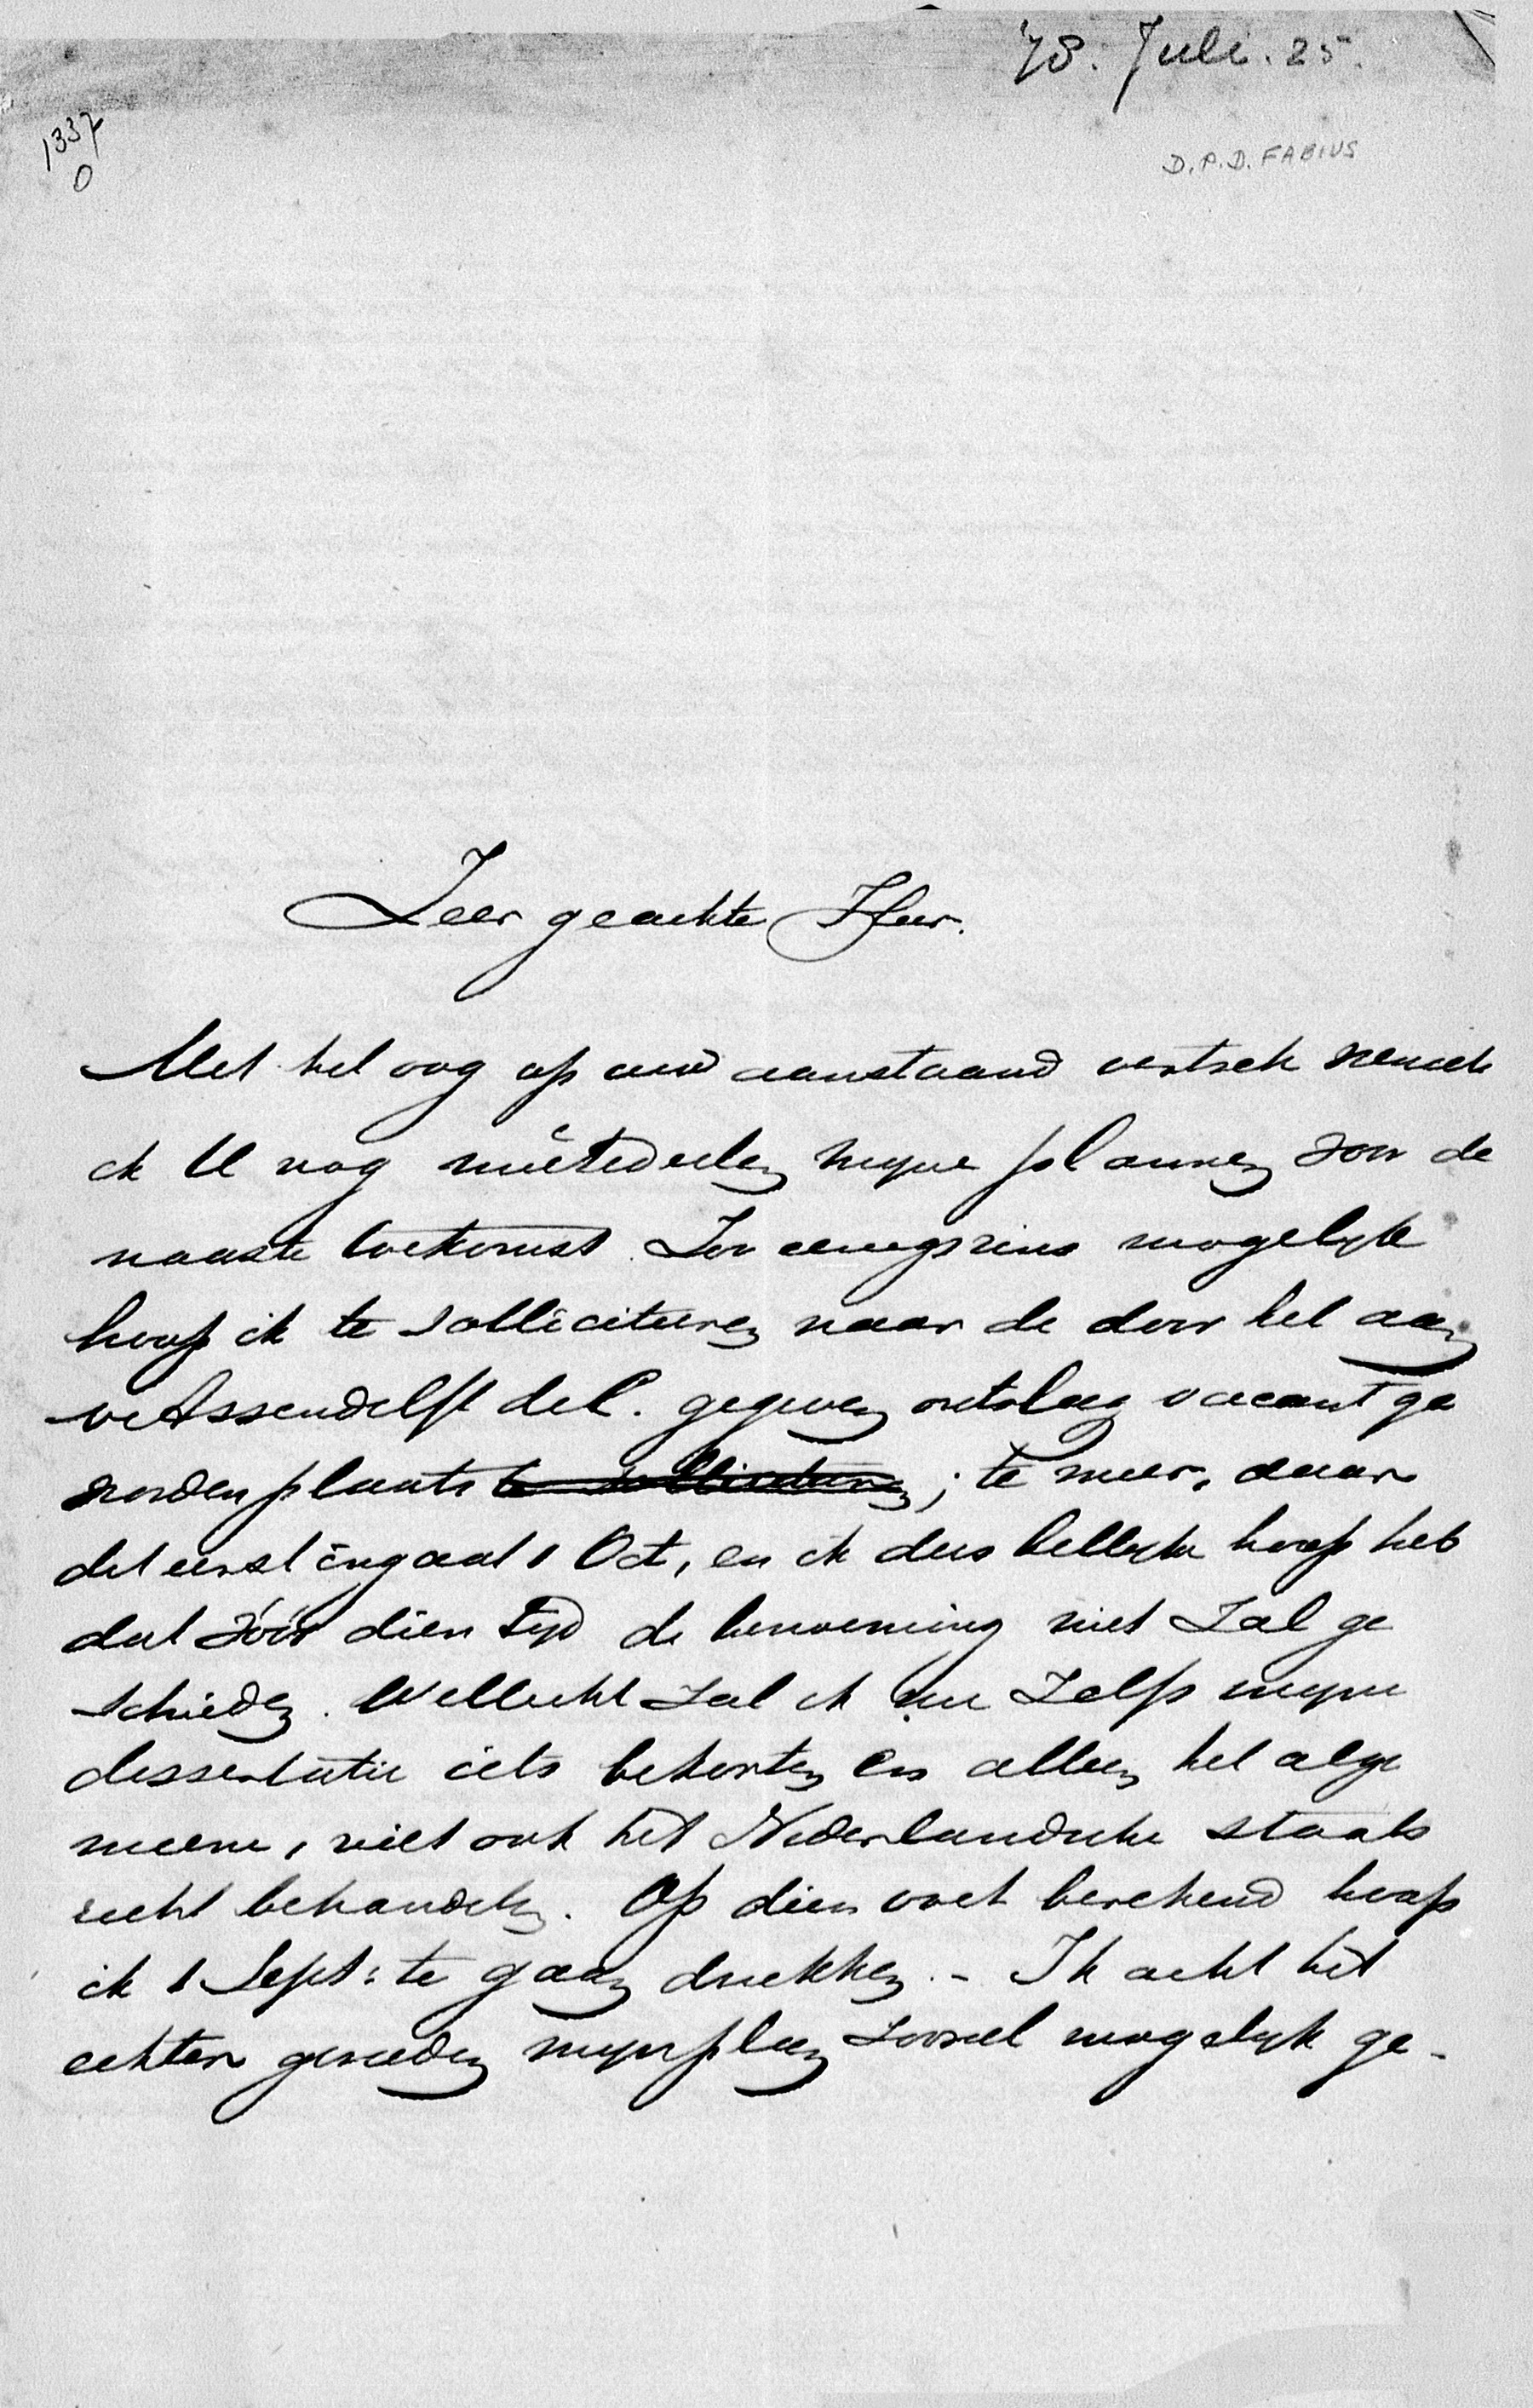 78. Juli. 25.
1337
0
D.P.D. FABIUS
Zeer geachte Heer.
Met het oog op uw aanstaand vertrek wensch
ik U nog meêtedeelen mijne plannen voor de
naaste toekomst. Zoo eenigszins mogelijk
hoop ik te solliciteeren naar de door het aan
v Assendelft de C. gegeven ontslag vacant ge
worden plaats te solliciteeren; te meer, daar
dit eerst ingaat 1 Oct, en ik dus billijke hoop heb
dat vóór dien tijd de benoeming niet zal ge
schieden. Wellicht zal ik nu zelfs mijne
dissertatie iets bekorten en alleen het alge
meene, niet ook het Nederlandsche staats
recht behandelen. Op dien voet berekend hoop
ik 1 Sept: te gaan drukken. - Ik acht het
echter geraden mijn plan zooveel mogelijk ge-